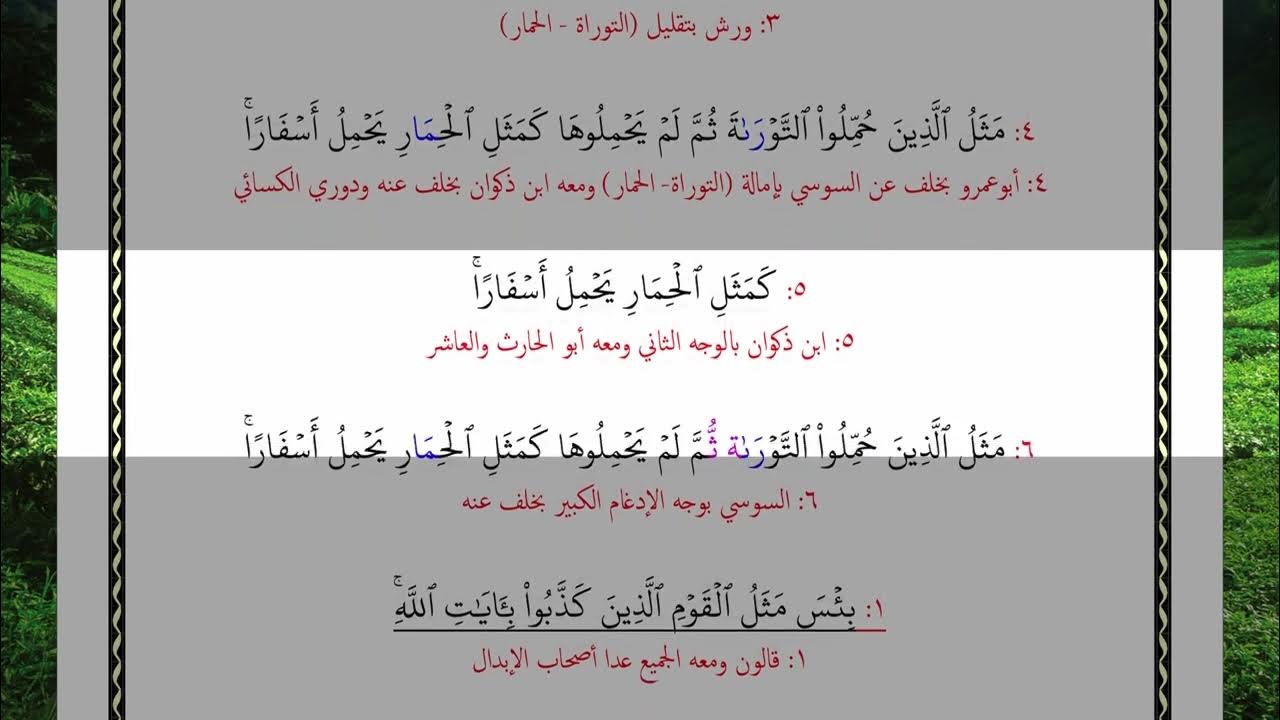 ٣: ورش بتقليل (التوراة - الحمار)
٤: مَثَلُ ٱلَّذِينَ حُمِّلُواْ ٱلتَّوۡرَىٰةَ ثُمَّ لَمۡ يَحۡمِلُوهَا كَمَثَلِ ٱلۡحِمَارِ يَحۡمِلُ أَسۡفَارَۢاۚ
٤: أبوعمرو بخلف عن السوسي بإمالة (التوراة- الحمار) ومعه ابن ذكوان بخلف عنه ودوري الكسائي
٥: كَمَثَلِ ٱلۡحِمَارِ يَحۡمِلُ أَسۡفَارٗاۚ
٥: ابن ذكوان بالوجه الثاني ومعه أبو الحارث والعاشر
٦: مَثَلُ ٱلَّذِينَ حُمِّلُواْ ٱلتَّوۡرَىٰة ثُّمَّ لَمۡ يَحۡمِلُوهَا كَمَثَلِ ٱلۡحِمَارِ يَحۡمِلُ أَسۡفَارٗاۚ
٦: السوسي بوجه الإدغام الكبير بخلف عنه
١: بِئۡسَ مَثَلُ ٱلۡقَوۡمِ ٱلَّذِينَ كَذَّبُواْ بِـَٔايَٰتِ ٱللَّهِۚ
١: قالون ومعه الجميع عدا أصحاب الإبدال